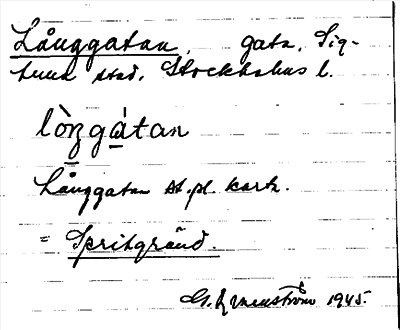 Långgatan, gata, Sig-
tuna stad, Stockholms l.
lòŋgátan
Långgatan st.pl. kart.
= Spritgränd.
1945.